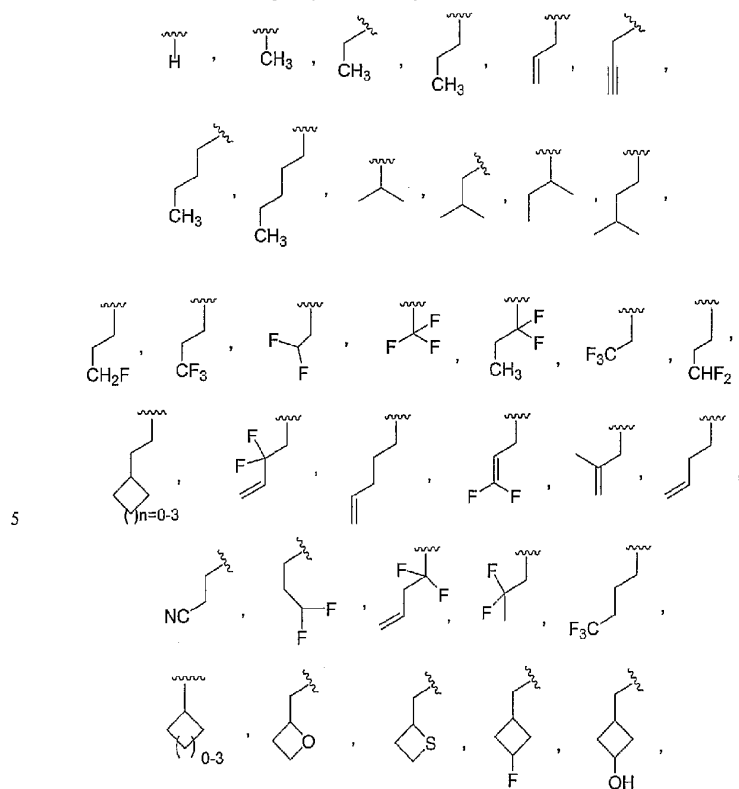 H , CH3 , CH3 , CH3 , , ,
CH3 , CH3 , , , , ,
CH2F , CF3 , F F , F F F , F F CH3 , F3C , CHF2 ,
( )n=0-3 , F F , , F F , , ,
5
NC , F F , F F , F F , F3C ,
( ) 0-3 , O , S , F , OH ,